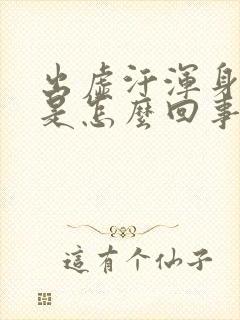 出虛汗渾身
是怎麼回事
這有个仙子